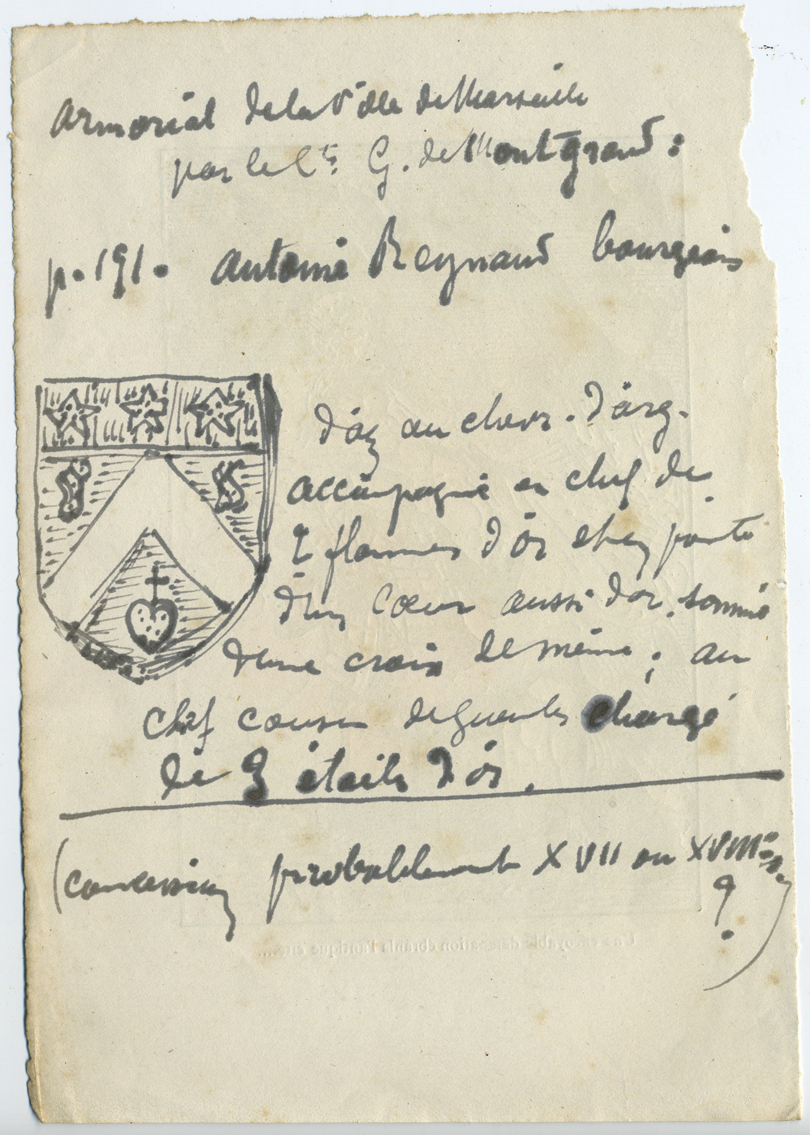 Armorial de la Ville de Marseille
par le Cte G. de Montgrand :
p. 191. Antoine Reynaud bourgeois
d'az au chevr. d'arg.
accompagné en chef de
2 flammes d'or et en pointe
d'un cœur aussi d'or, sommé
d'une croix de même ; au
chef cousu de gueules chargé
de 3 étoiles d'or.
(concession probablement XVII ou XVIIIme
?)